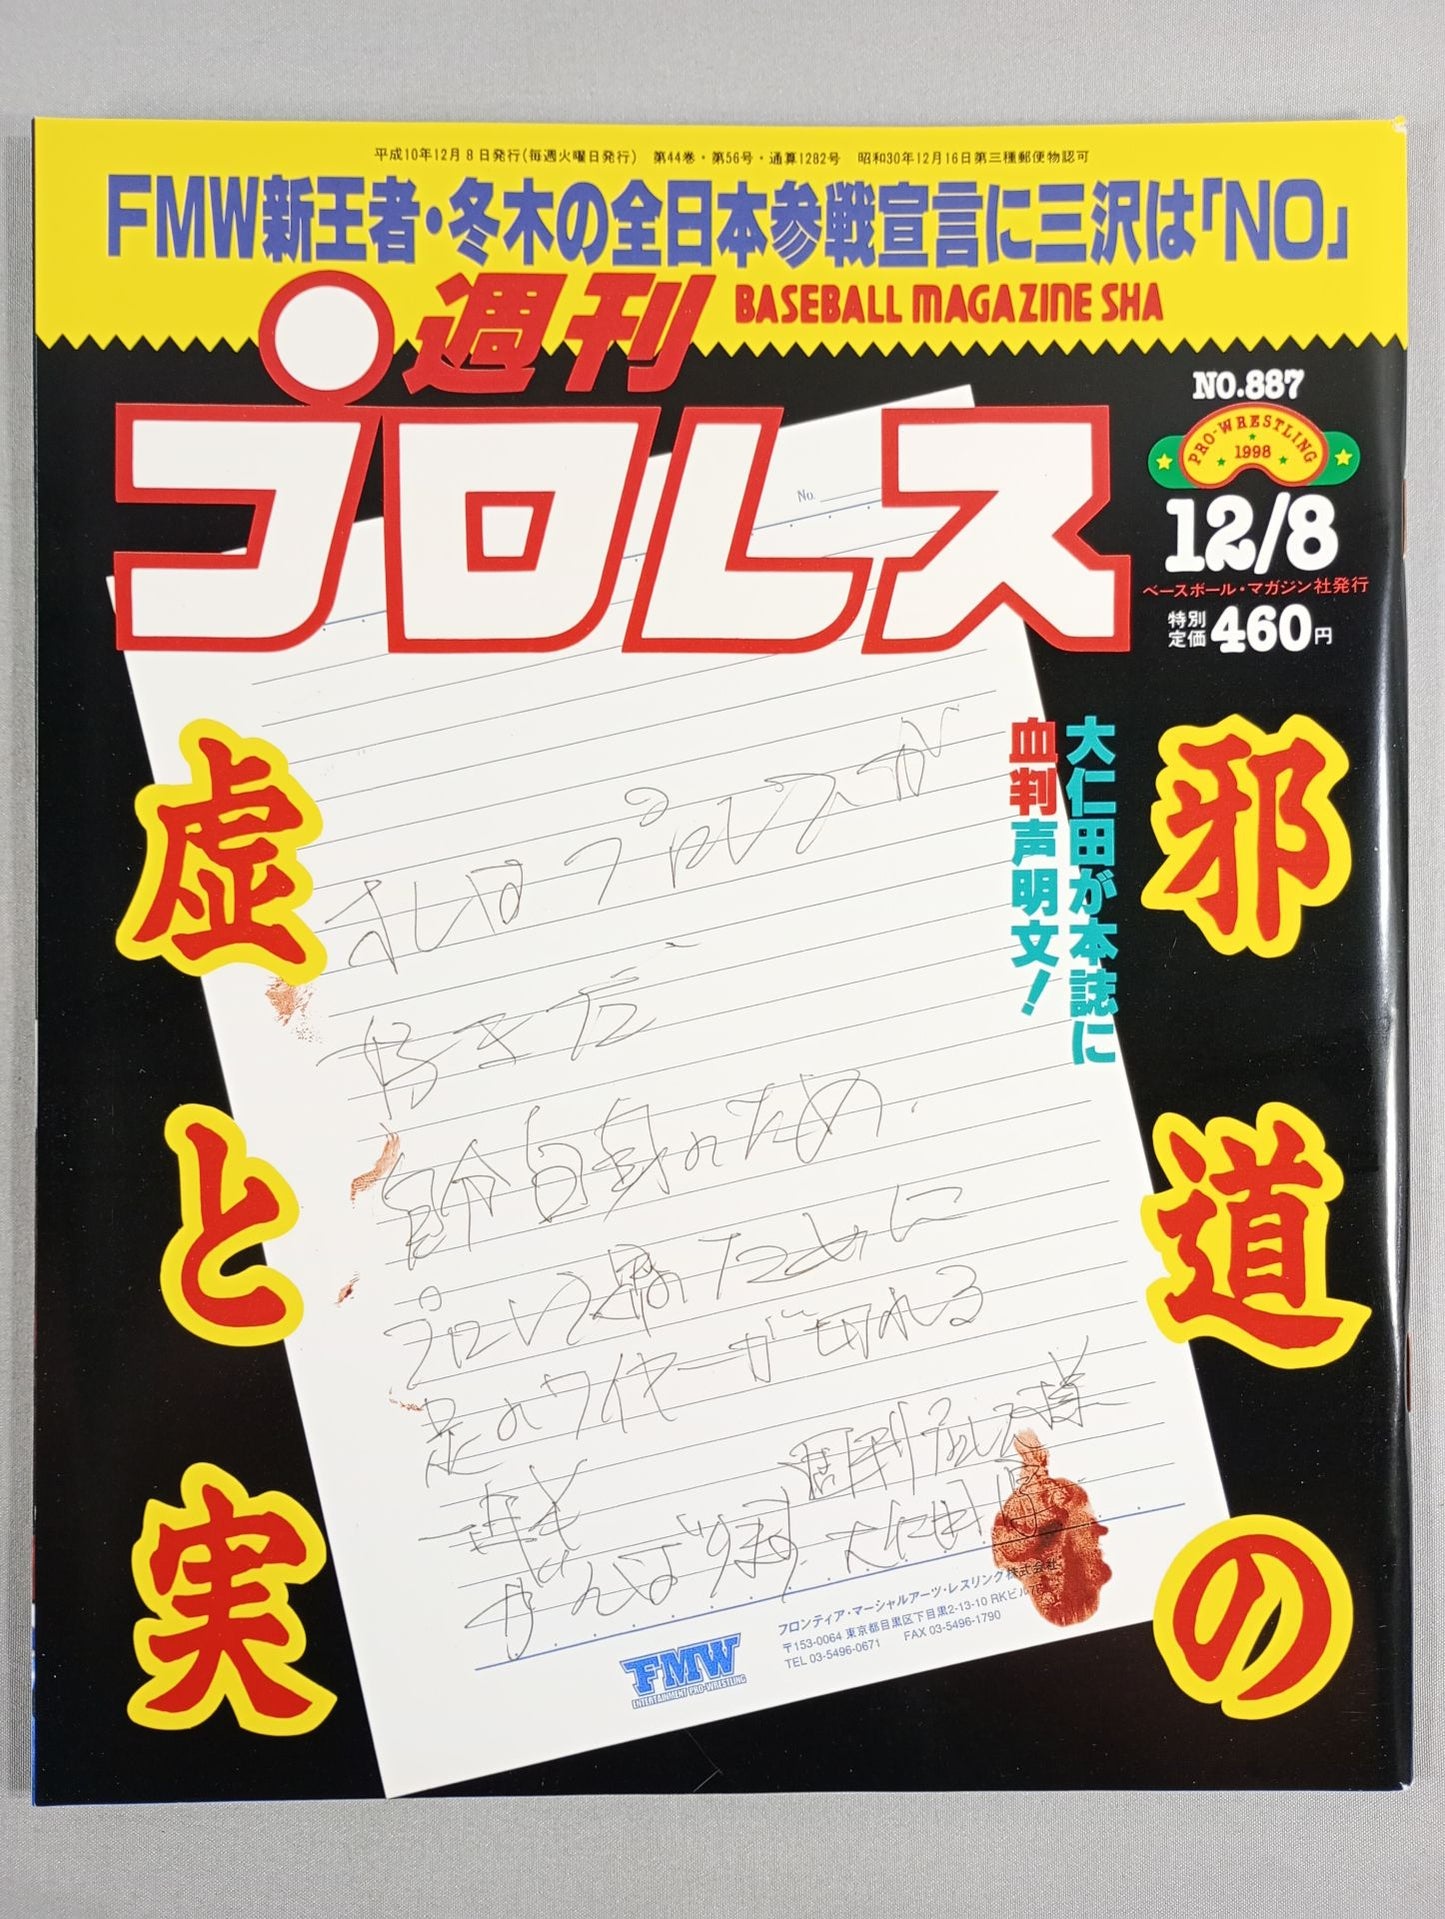 平成10年12月8日発行(毎週火曜日発行) 第44巻・第56号・通算1282号 昭和30年12月16日第三種郵便物認可
FMW新王者・冬木の全日本参戦宣言に三沢は「NO」
週刊 BASEBALL MAGAZINE SHA
プロレス
NO.887
PRO-WRESTLING
1998
12/8
ベースボール・マガジン社発行
特別定価460円
邪道の
虚と実
大仁田が本誌に
血判声明文!
No.
オレはプロレスが
好きだ
自分自身のため、
プロレス界のために
足のワイヤーが切れる
迄
がんばります
週刊プロレス様
大仁田厚
フロンティア・マーシャルアーツ・レスリング株式会社
〒153-0064 東京都目黒区下目黒2-13-10 RKビル
TEL 03-5496-0671 FAX 03-5496-1790
FMW
ENTERTAINMENT PRO-WRESTLING